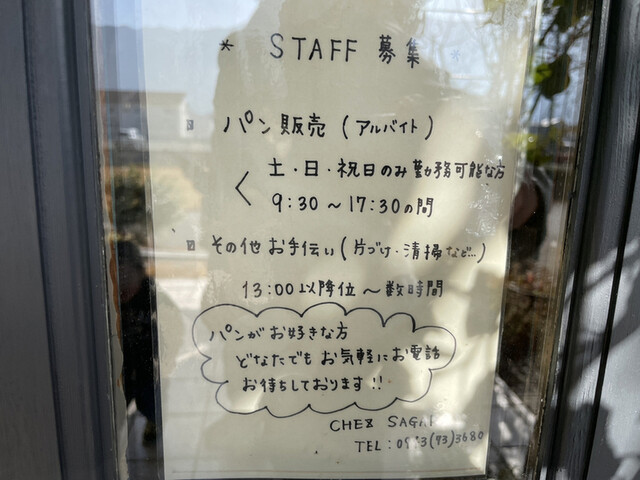 * STAFF 募集 *
パン販売 (アルバイト)
土・日・祝日のみ勤務可能な方
9:30 ~ 17:30の間
その他お手伝い (片づけ・清掃など…)
13:00 以降位~数時間
パンがお好きな方
どなたでもお気軽にお電話
お待ちしております!!
CHEZ
TEL: